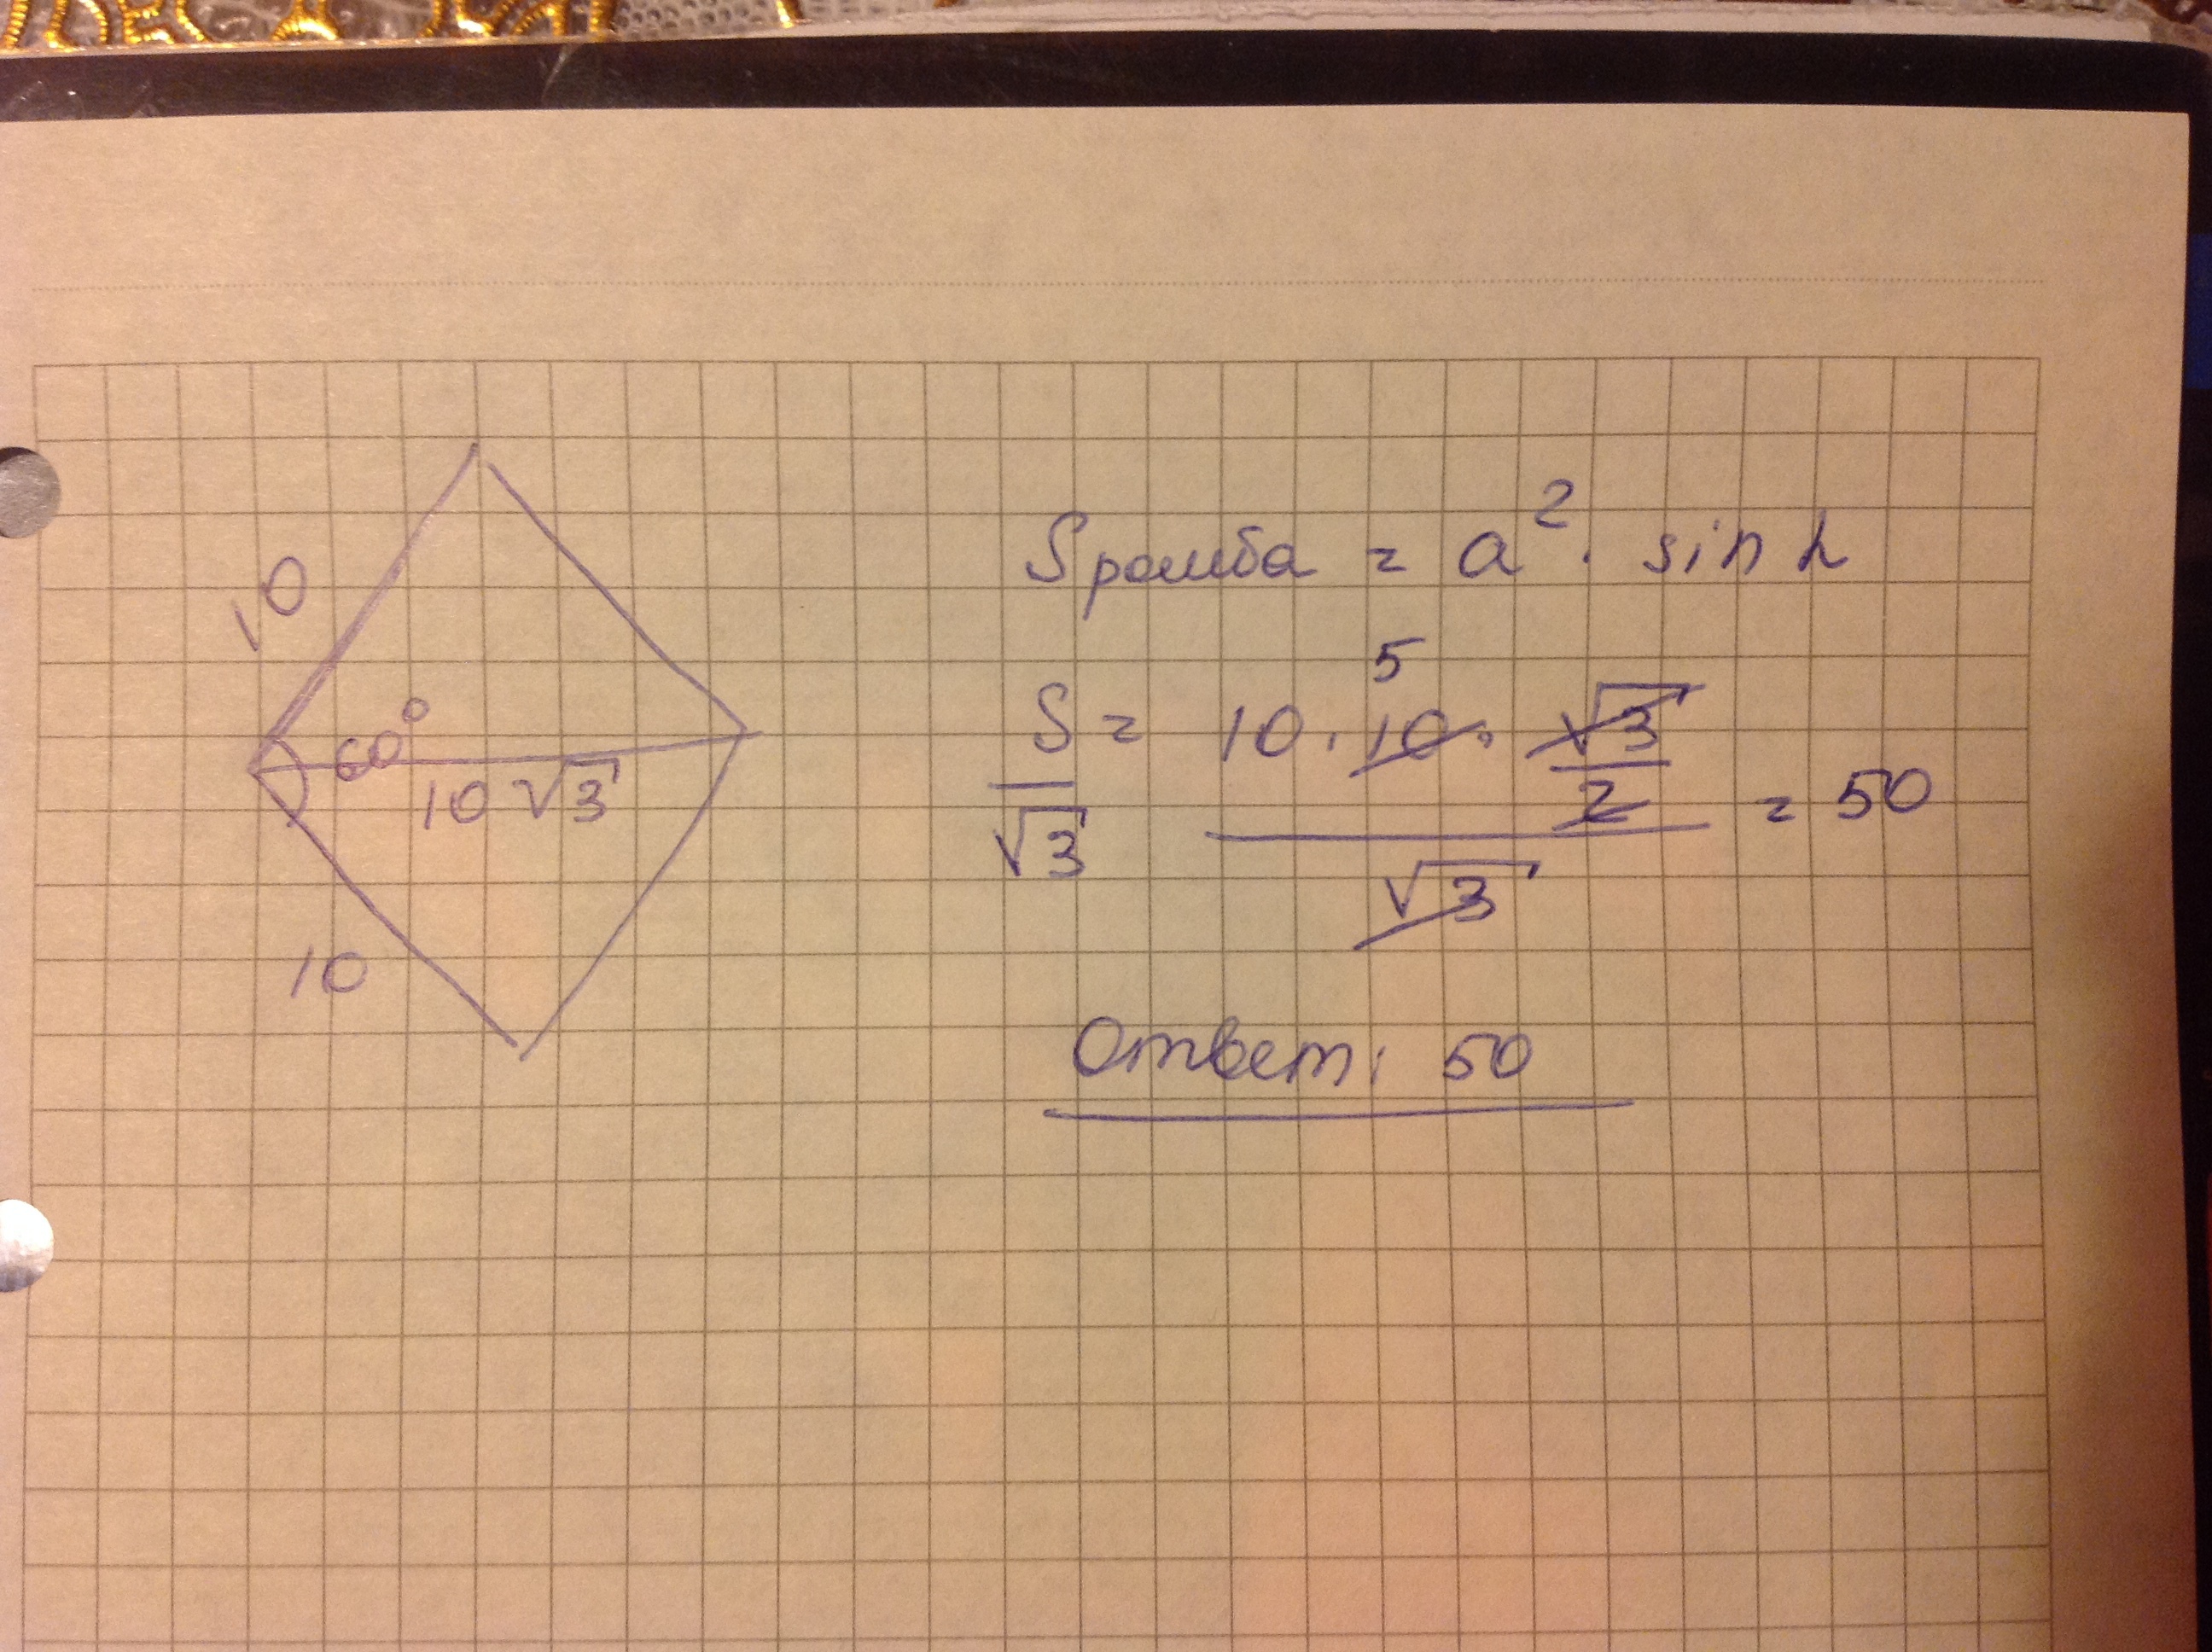 10
60°
10√3
10
Sромба = a² · sin α
S/√3 = (10 · 10 · √3/2)/√3 = 50
5
Ответ: 50